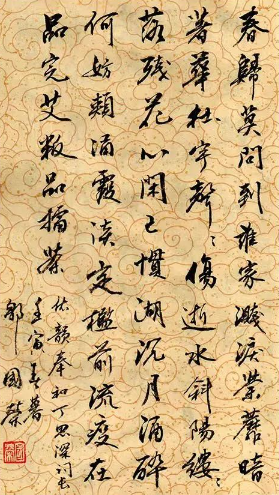 春歸莫問到誰家濺淚荼蘼暗
著華杜宇聲聲傷逝水斜陽縷縷
落殘花心閑已慣湖沉月酒醉
何妨頰涌霞淡定檻前流疫在
品完艾粄品擂茶
依韻奉和丁思深詞長
壬寅春暮
鄒國榮